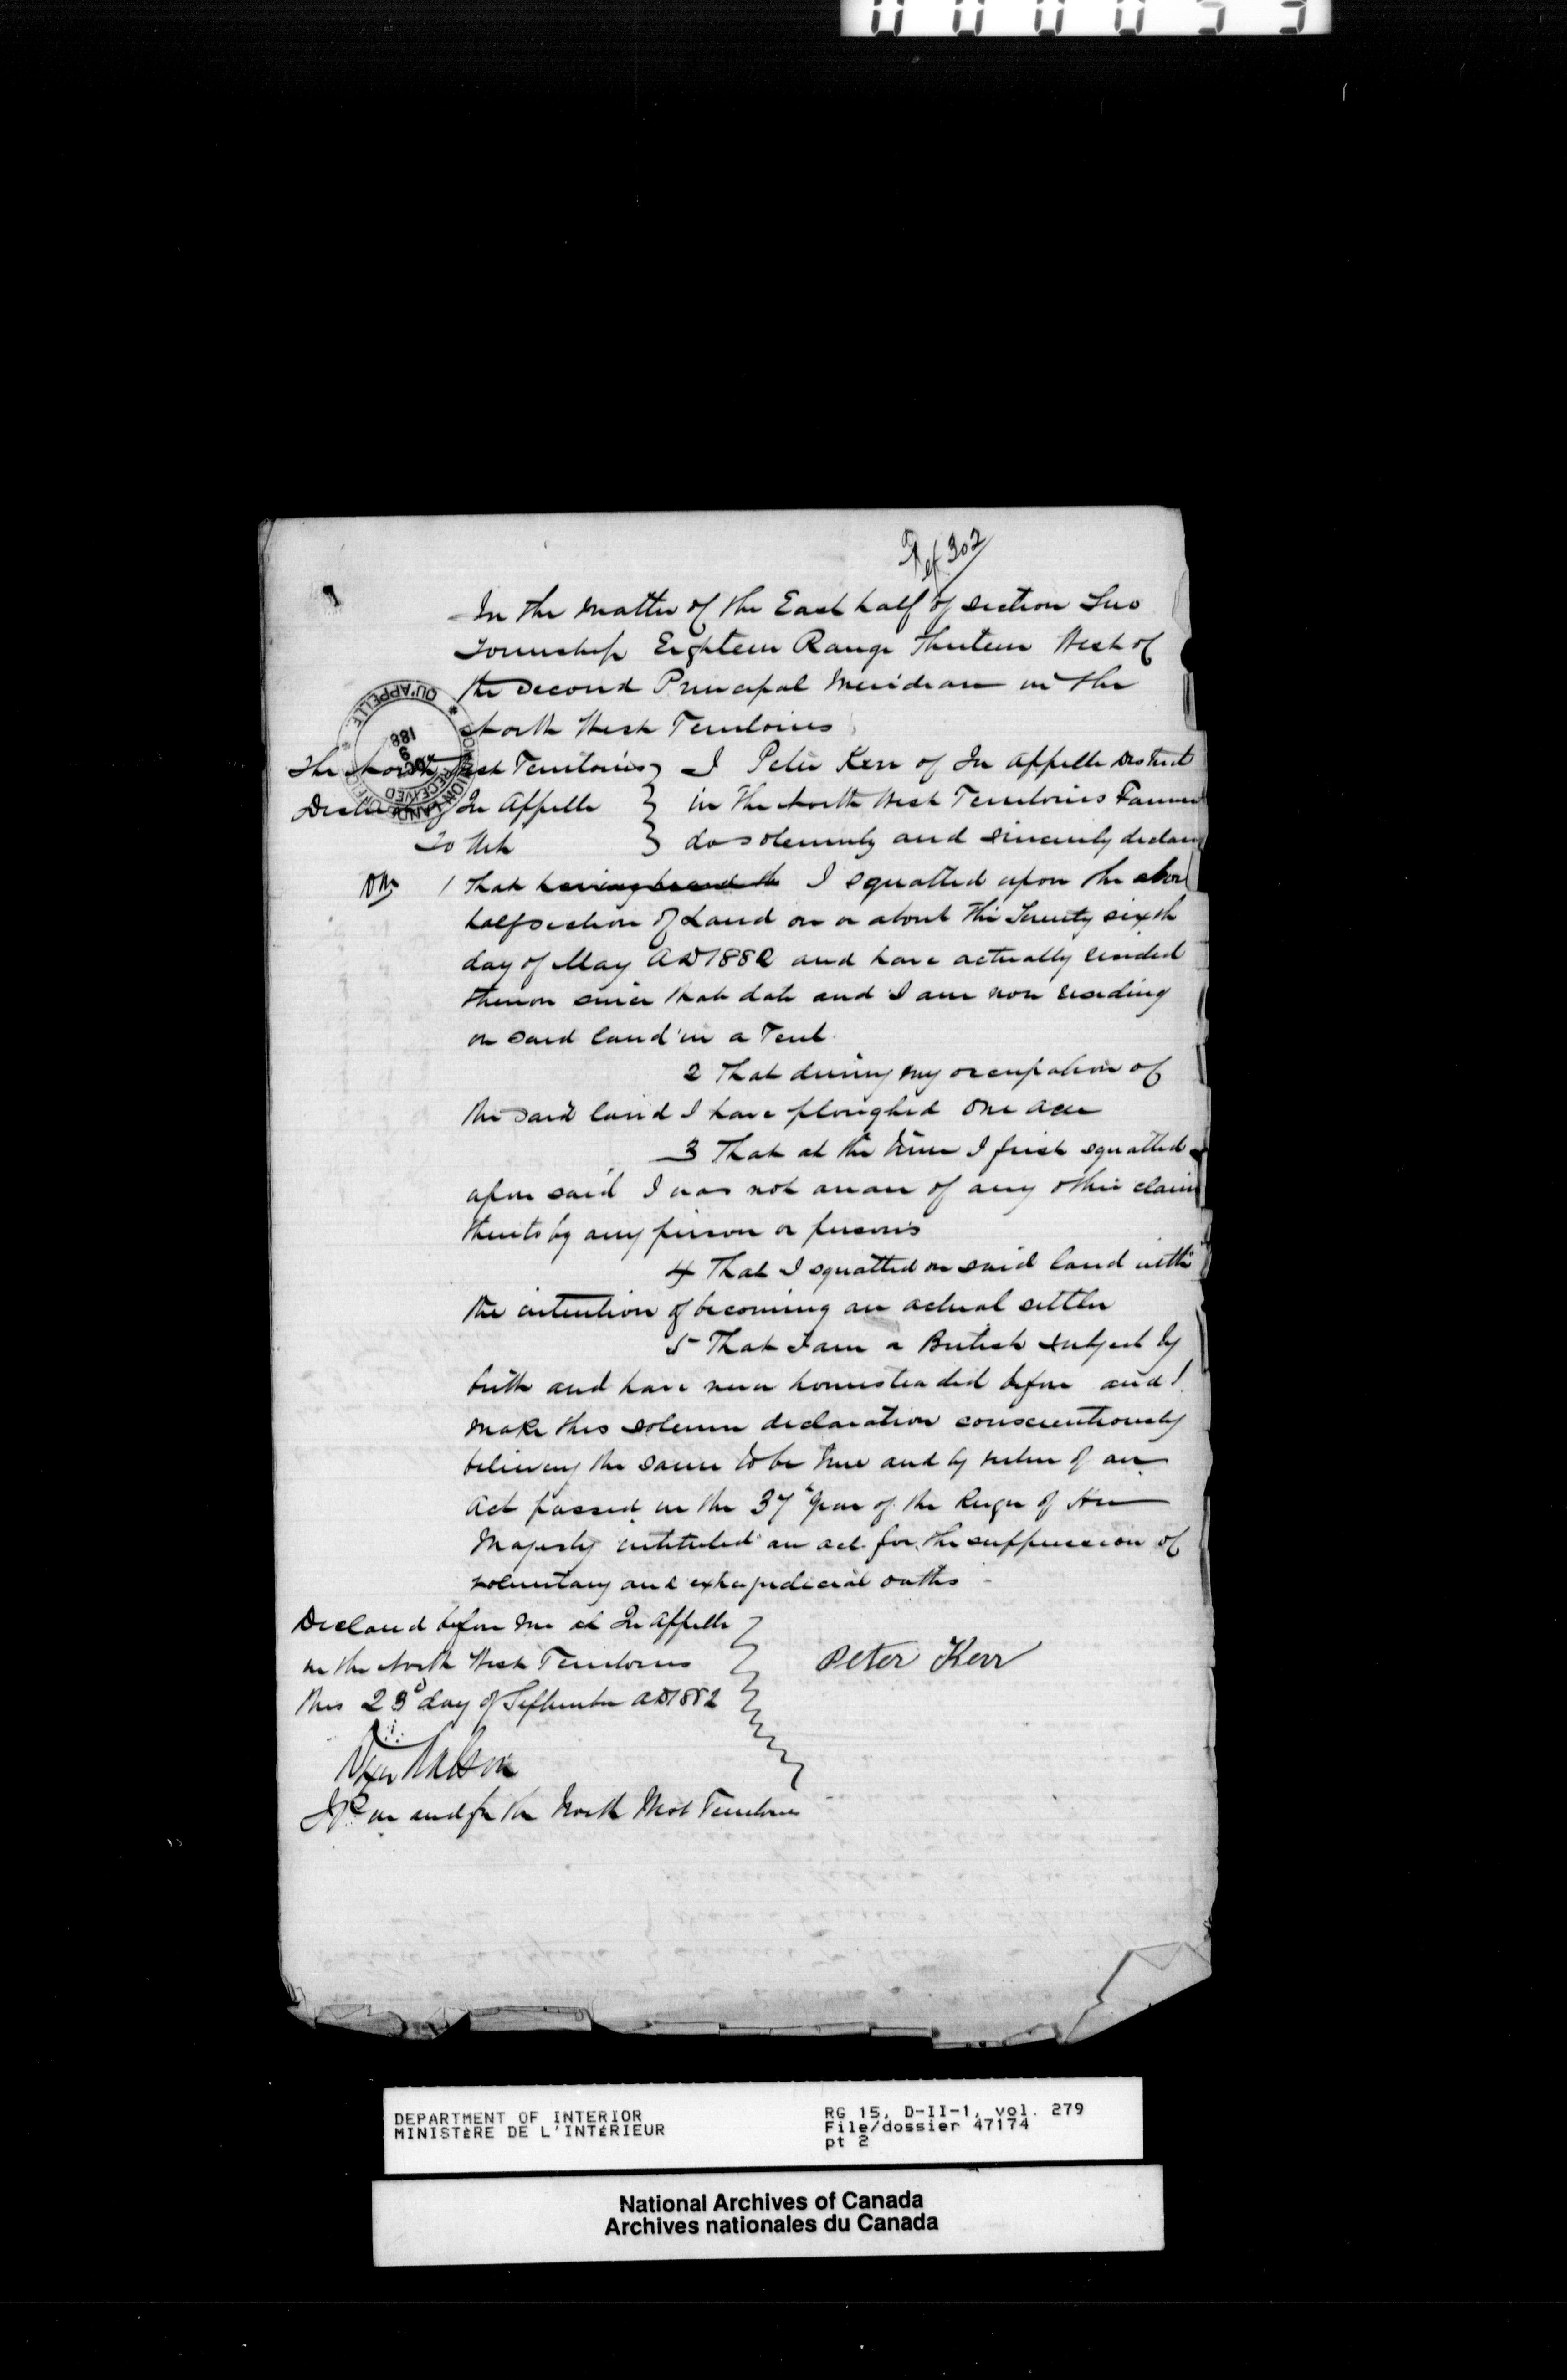 000053
Ref 302
In the matter of the East half of section Two
Township Eighteen Range Thirteen West of
the Second Principal Meridian in the
North West Territories
QU'APPELLE
DOMINION LANDS OFFICE
RECEIVED
9
188
The North West Territories } I Peter Kerr of Qu Appelle District
District of Qu Appelle } in the North West Territories Farmer
To Wit } do solemnly and sincerely declare
1 That having heard the I squatted upon the above
half section of Land on or about the Twenty sixth
day of May AD 1882 and have actually resided
thereon since that date and I am now residing
on said land in a Tent.
2 That during my occupation of
the said land I have ploughed One acre
3 That at the time I first squatted
upon said I was not aware of any other claim
thereto by any person or persons
4 That I squatted on said land with
the intention of becoming an actual settler
5 That I am a British subject by
birth and have never homesteaded before and I
make this solemn declaration conscientiously
believing the same to be true and by virtue of an
act passed in the 37th Year of the Reign of Her
Majesty intituled an act for the suppression of
voluntary and extrajudicial oaths
Declared before me at Qu Appelle
in the North West Territories
this 23d day of September AD 1882
Peter Kerr
JP in and for the North West Territories
DEPARTMENT OF INTERIOR
MINISTÈRE DE L'INTÉRIEUR
RG 15, D-II-1, vol. 279
File/dossier 47174
pt 2
National Archives of Canada
Archives nationales du Canada